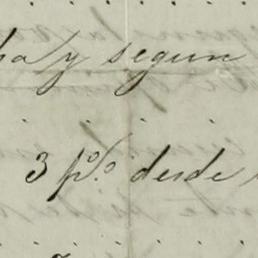 ha y segun
3 p%. desde